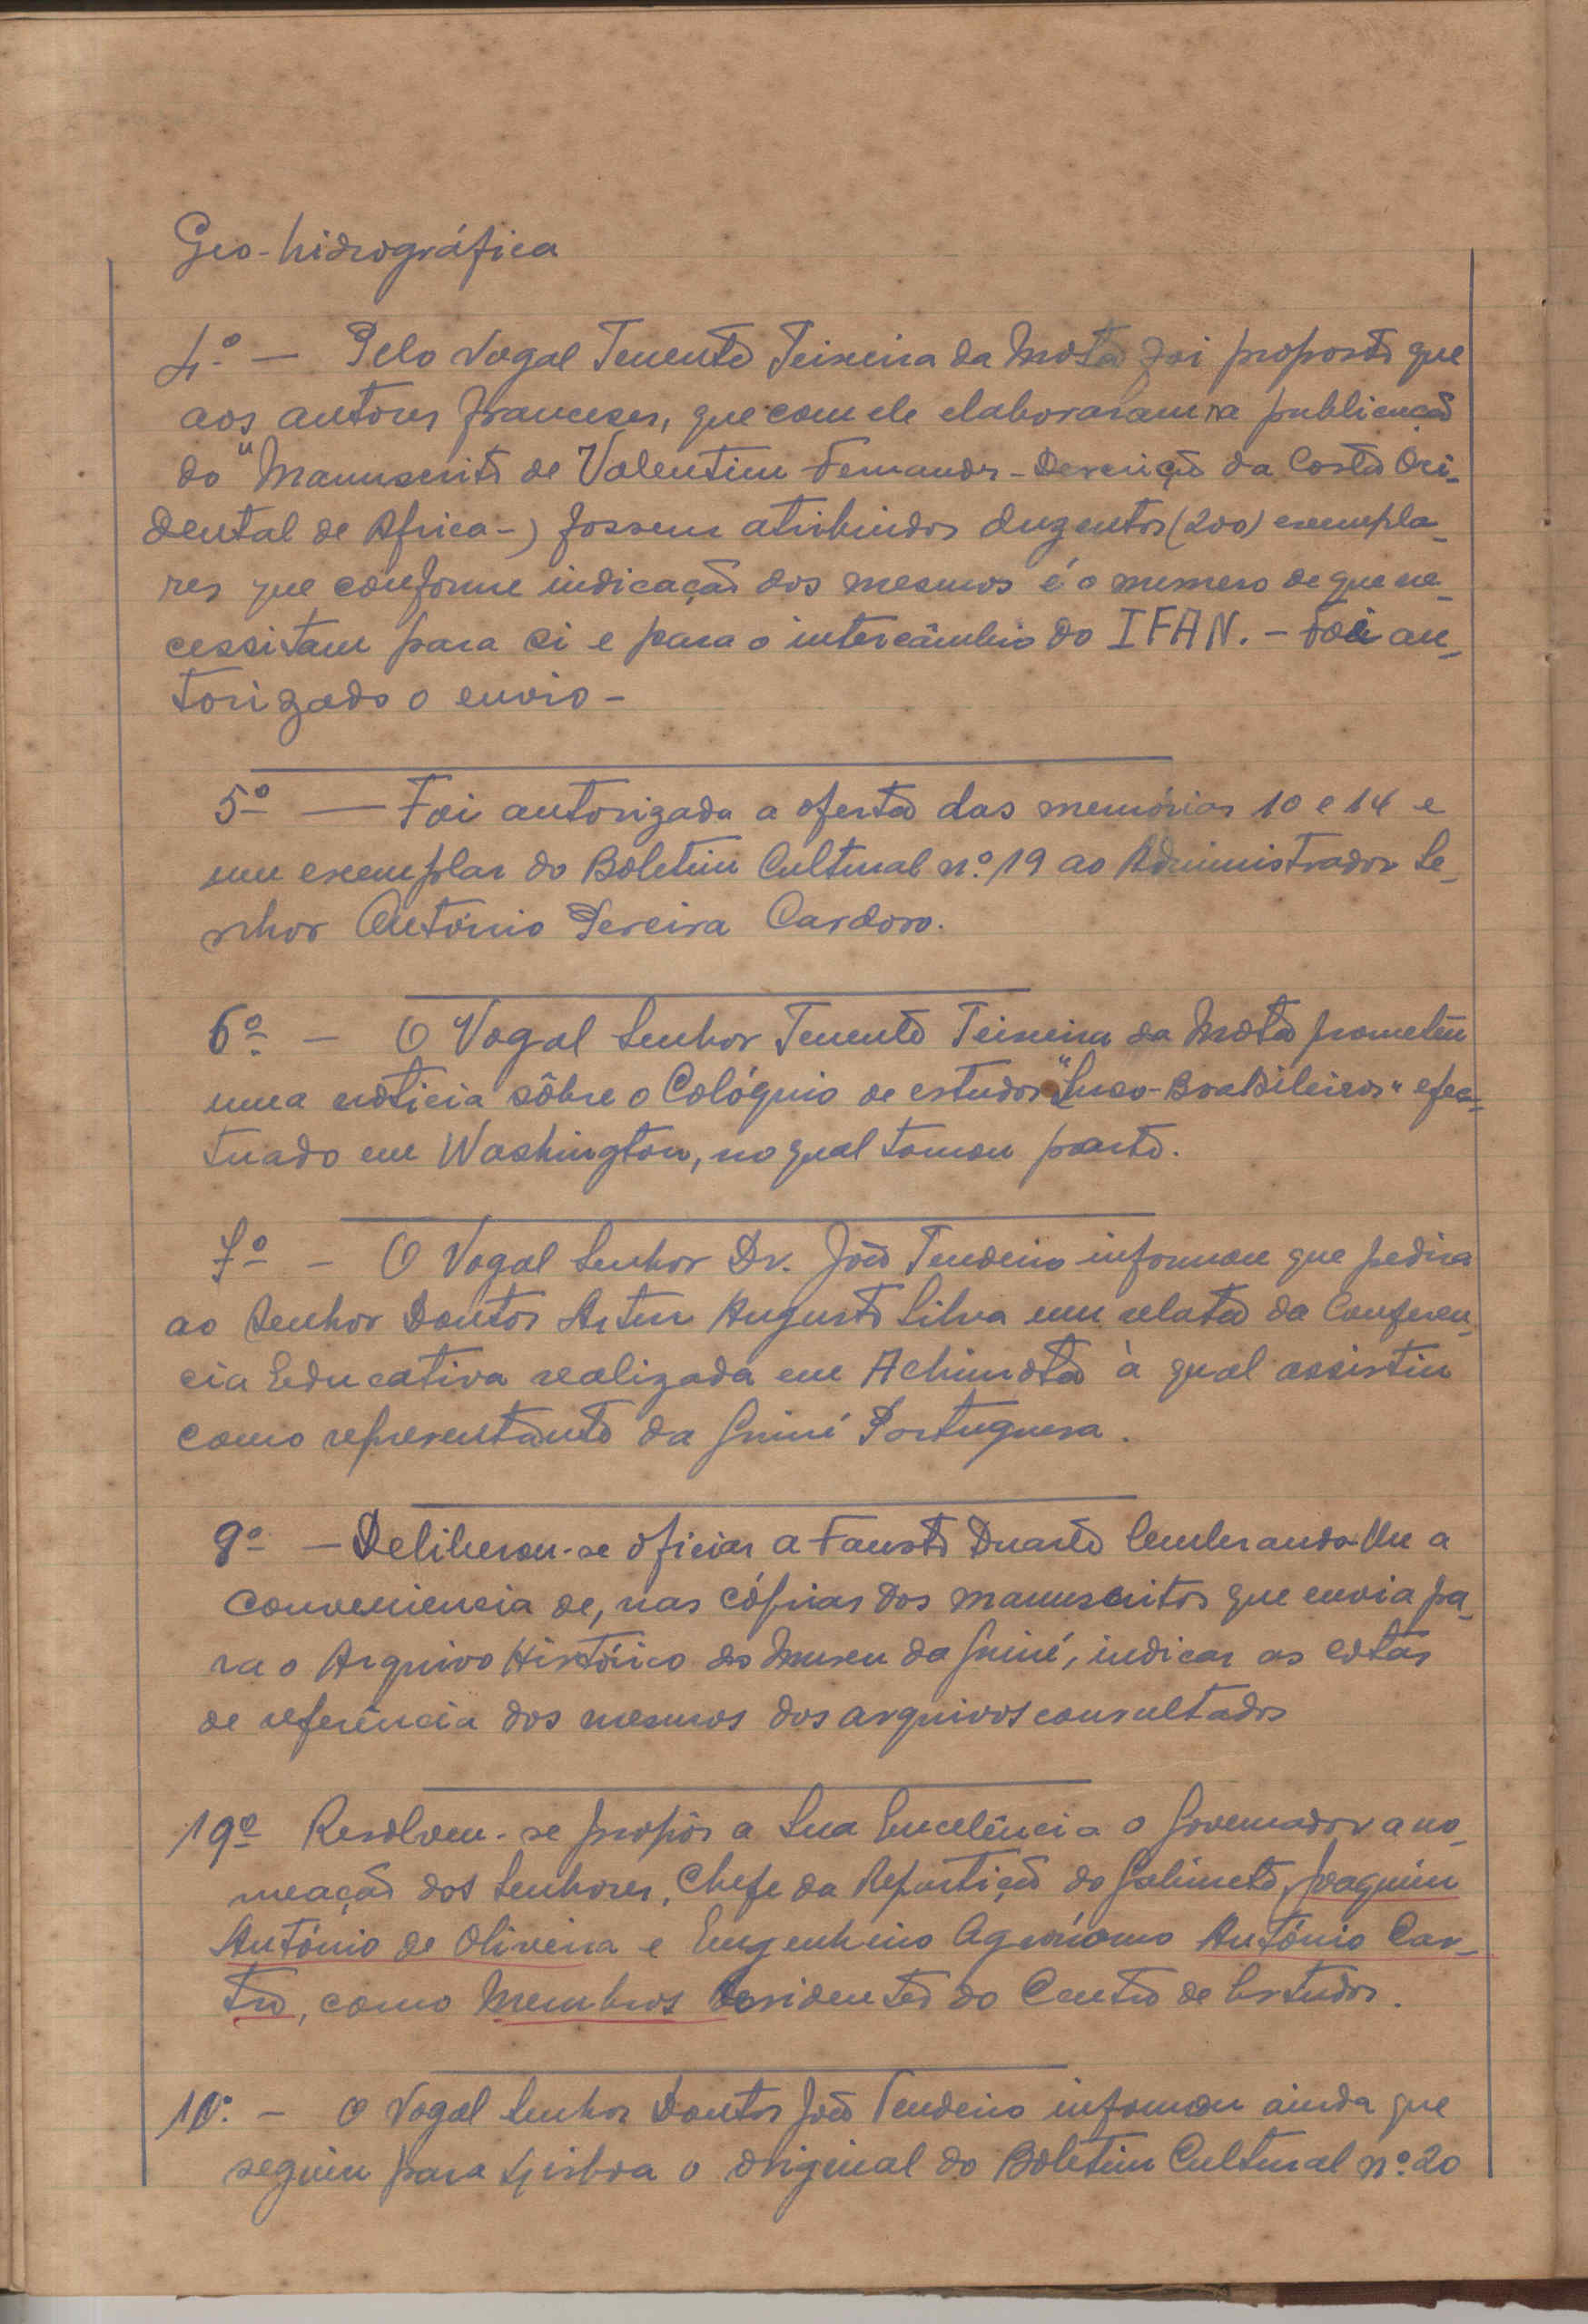 Geo-hidrográfica
4.º — Pelo Vogal Tenente Teixeira da Mota foi proposto que
aos autores franceses, que com ele elaboraram a publicação
do "Manuscrito de Valentim Fernandes - Descrição da Costa Oci-
dental de Africa -) fossem atribuidos duzentos (200) exempla-
res que conforme indicação dos mesmos é o numero de que ne-
cessitam para si e para o intercâmbio do IFAN. - Foi au-
torizado o envio -
5º — Foi autorizada a oferta das memórias 10 e 14 e
um exemplar do Boletim Cultural n.º 19 ao Administrador Se-
nhor António Pereira Cardoso.
6º. — O Vogal Senhor Tenente Teixeira da Mota prometeu
uma noticia sôbre o Colóquio de estudos "Luso-Brasileiros" efec-
tuado em Washington, no qual tomou parte.
7º — O Vogal Senhor Dr. João Tendeiro informou que pedira
ao Senhor Doutor Artur Augusto Silva um relato da Conferen-
cia Educativa realizada em Achimota à qual assistiu
como representante da Guiné Portuguesa.
9º — Deliberou-se oficiar a Fausto Duarte lembrando-lhe a
conveniencia de, nas cópias dos manuscritos que envia pa-
ra o Arquivo Histórico do Museu da Guiné, indicar as cotas
de referência dos mesmos dos arquivos consultados
19º Resolveu-se propôr a Sua Excelência o Governador a no-
meação dos Senhores, Chefe da Repartição do Gabinete, Joaquim
António de Oliveira e Engenheiro Agrónomo António Cas-
tro, como Membros Residentes do Centro de Estudos.
10.º — O Vogal Senhor Doutor João Tendeiro informou ainda que
seguiu para Lisboa o original do Boletim Cultural n.º 20